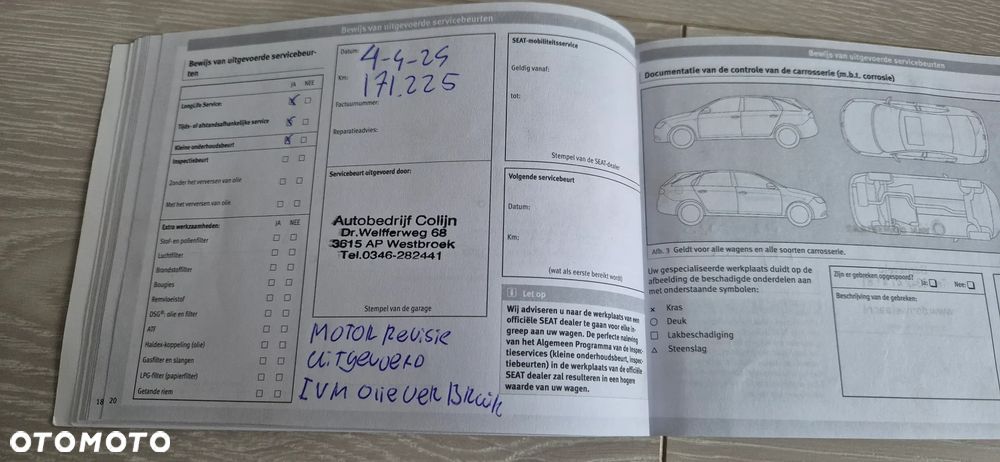 Bewijs van uitgevoerde servicebeurten
Bewijs van uitgevoerde servicebeur-
ten
JA NEE
LongLife Service:
Tijds- of afstandsafhankelijke service
Kleine onderhoudsbeurt
Inspectiebeurt
Zonder het verversen van olie
Met het verversen van olie
Extra werkzaamheden: JA NEE
Stof- en pollenfilter
Luchtfilter
Brandstoffilter
Bougies
Remvloeistof
DSG®: olie en filter
ATF
Haldex-koppeling (olie)
Gasfilter en slangen
LPG-filter (papierfilter)
Getande riem
18 20
Datum: 4-4-24
Km: 171.225
Factuurnummer:
Reparatieadvies:
Servicebeurt uitgevoerd door:
Autobedrijf Colijn
Dr.Welfferweg 68
3615 AP Westbroek
Tel.0346-282441
Stempel van de garage
MOTOR Revisie
uitgevoerd
IVM olieverBruik
SEAT-mobiliteitsservice
Geldig vanaf:
tot:
Stempel van de SEAT-dealer
Volgende servicebeurt
Datum:
Km:
(wat als eerste bereikt word)
i Let op
Wij adviseren u naar de werkplaats van een
officiële SEAT dealer te gaan voor elke in-
greep aan uw wagen. De perfecte naleving
van het Algemeen Programma van de Inspec-
tieservices (kleine onderhoudsbeurt, inspec-
tiebeurten) in de werkplaats van de officiële
SEAT dealer zal resulteren in een hogere
waarde van uw wagen.
Bewijs van uitgevoerde servicebeurten
Documentatie van de controle van de carrosserie (m.b.t. corrosie)
Afb. 3 Geldt voor alle wagens en alle soorten carrosserie.
Uw gespecialiseerde werkplaats duidt op de
afbeelding de beschadigde onderdelen aan
met onderstaande symbolen:
x Kras
○ Deuk
□ Lakbeschadiging
△ Steenslag
Zijn er gebreken opgespoord? Ja: Nee:
Beschrijving van de gebreken:
OTOMOTO